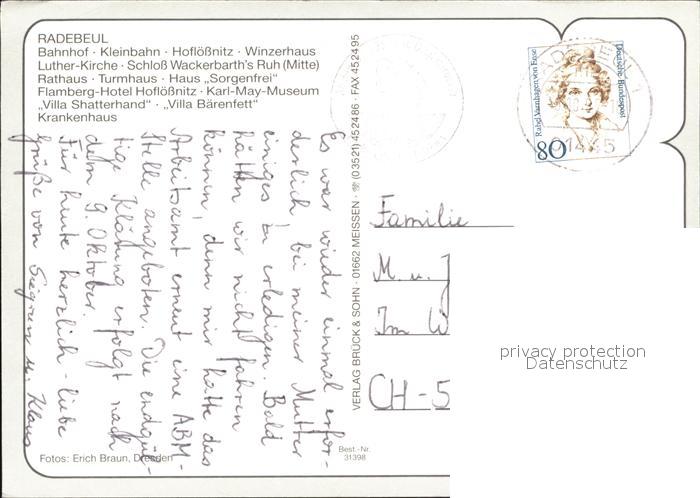 RADEBEUL
Bahnhof · Kleinbahn · Hoflößnitz · Winzerhaus
Luther-Kirche · Schloß Wackerbarth's Ruh (Mitte)
Rathaus · Turmhaus · Haus „Sorgenfrei"
Flamberg-Hotel Hoflößnitz · Karl-May-Museum
„Villa Shatterhand" · „Villa Bärenfett"
Krankenhaus
Es war wieder einmal erfor-
derlich bei meiner Mutter
einiges zu erledigen. Bald
hätten wir nicht fahren
können, denn mir hatte das
Arbeitsamt erneut eine ABM-
Stelle angeboten. Die endgül-
tige Klärung erfolgt nach
dem 9. Oktober.
Für heute herzlich-liebe
Grüße von Siegrun u. Klaus
Fotos: Erich Braun, Dresden
Best.-Nr.
31398
VERLAG BRÜCK & SOHN · 01662 MEISSEN · ☏ (03521) 452486 · FAX 452495
Rahel Varnhagen von Ense
Deutsche Bundespost
80
01445
Familie
M. u. J
Im W
CH-5
privacy protection
Datenschutz